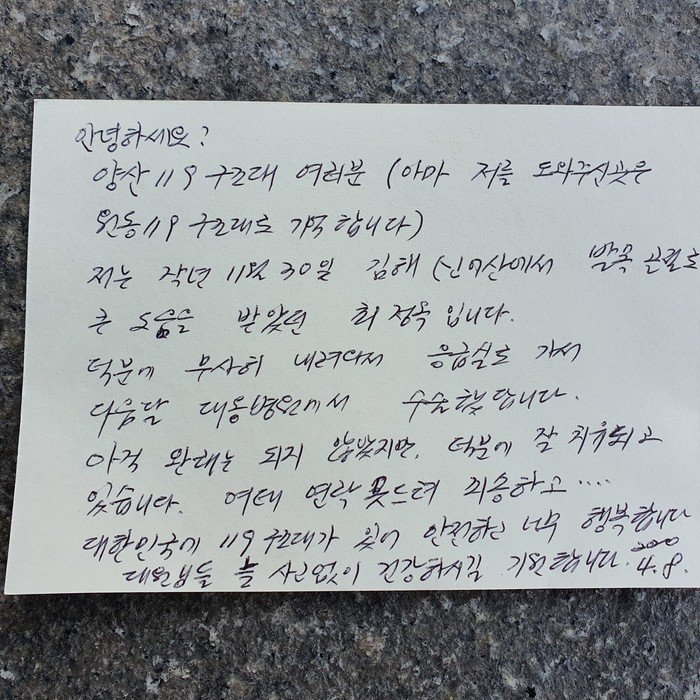 안녕하세요?
양산 119 구조대 여러분 (아마 저를 도와주신곳은
원동119 구조대로 기억합니다)
저는 작년 11월 30일 김해 (신어산에서 발목 골절로
큰 도움을 받았던 최정옥입니다.
덕분에 무사히 내려와서 응급실로 가서
다음달 대동병원에서 수술했답니다.
아직 완쾌는 되지 않았지만, 덕분에 잘 치유되고
있습니다. 여태 연락 못드려 죄송하고....
대한민국에 119 구조대가 있어 안전하고 너무 행복합니다
대원님들 늘 사고없이 건강하시길 기원합니다.
4.8.